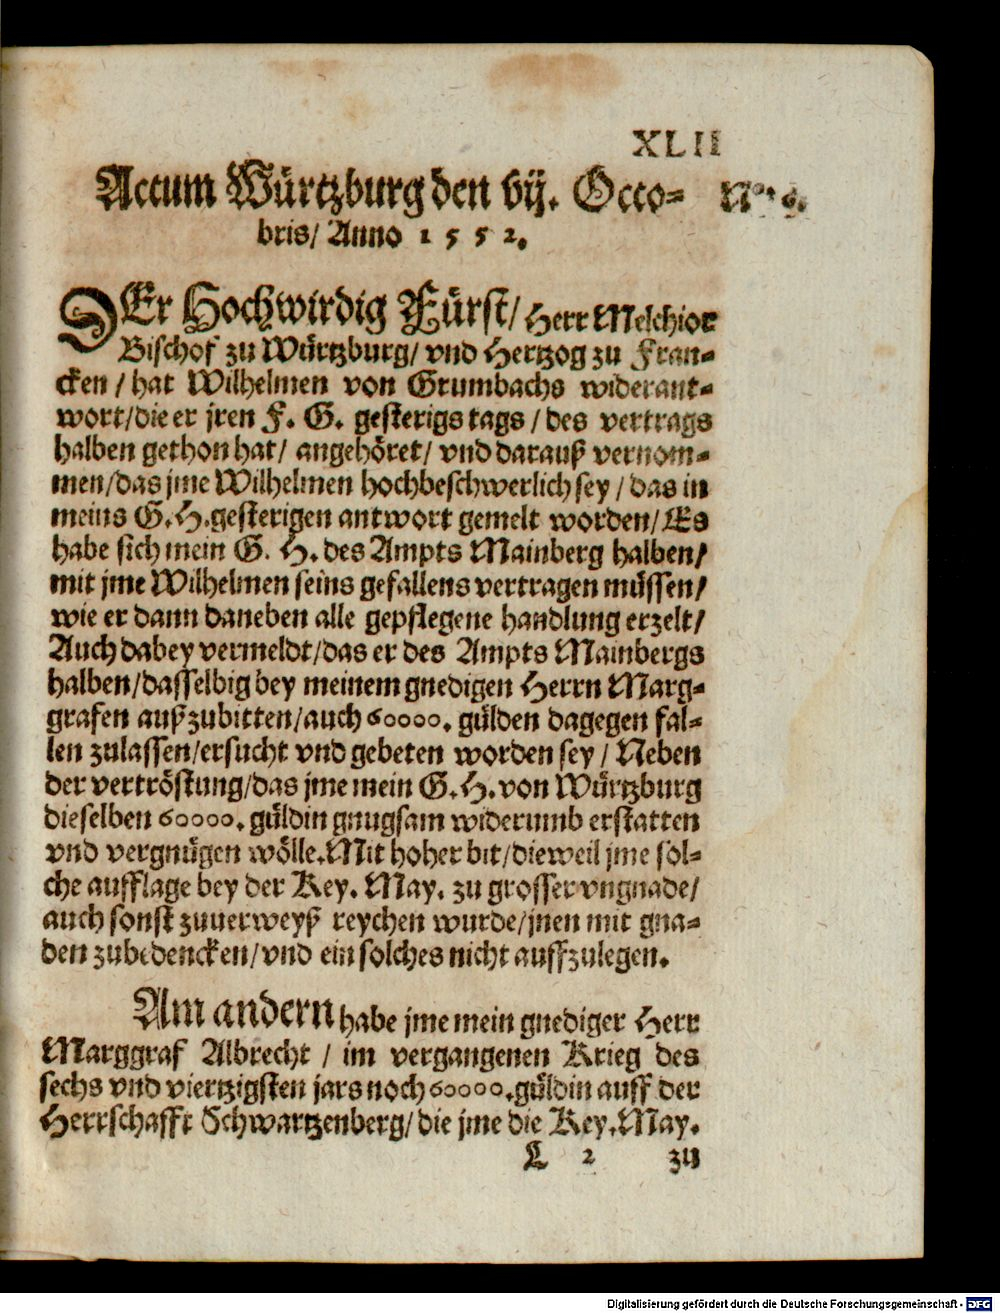 XLII
Actum Würtzburg den vij. Octo- No. 6.
bris/ Anno 1552.
DEr Hochwirdig Fürst/ Herr Melchior
Bischof zu Würtzburg/ vnd Hertzog zu Fran-
cken / hat Wilhelmen von Grumbachs widerant-
wort/die er jren F. G. gesterigs tags / des vertrags
halben gethon hat/ angehöret/ vnd darauß vernom-
men/das jme Wilhelmen hochbeschwerlich sey / das in
meins G.H.gesterigen antwort gemelt worden/ Es
habe sich mein G. H. des Ampts Mainberg halben/
mit jme Wilhelmen seins gefallens vertragen müssen/
wie er dann daneben alle gepflegene handlung erzelt/
Auch dabey vermeldt/das er des Ampts Mainbergs
halben/dasselbig bey meinem gnedigen Herrn Marg-
grafen außzubitten/auch 60000. gülden dagegen fal-
len zulassen/ersucht vnd gebeten worden sey / Neben
der vertröstung/das jme mein G.H.von Würtzburg
dieselben 60000. güldin gnugsam widerumb erstatten
vnd vergnügen wölle.Mit hoher bit/dieweil jme sol-
che aufflage bey der Key. May. zu grosser vngnade/
auch sonst zuuerweyß reychen wurde/jnen mit gna-
den zubedencken/vnd ein solches nicht auffzulegen.
Am andern habe jme mein gnediger Herr
Marggraf Albrecht / im vergangenen Krieg des
sechs vnd viertzigsten jars noch 60000.güldin auff der
Herrschafft Schwartzenberg/ die jme die Key.May.
L 2 zu
Digitalisierung gefördert durch die Deutsche Forschungsgemeinschaft - DFG